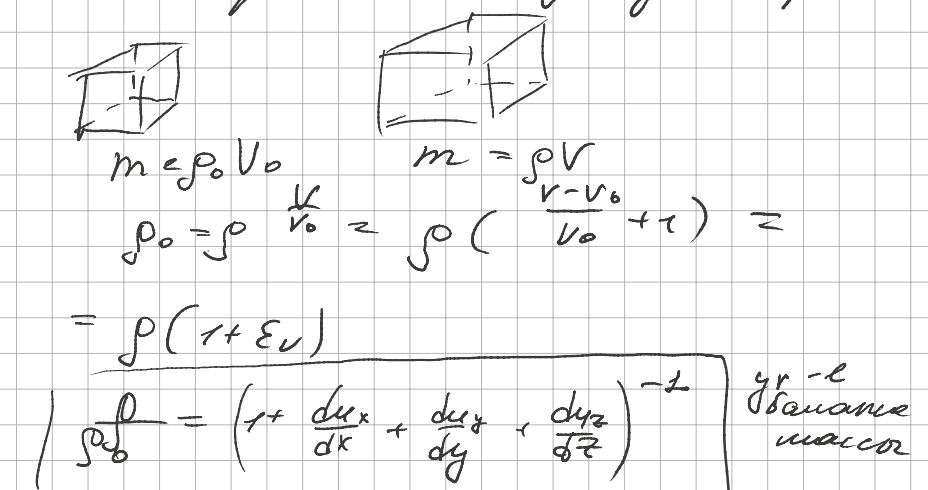 m = ρ₀ V₀
m = ρ V
ρ₀ = ρ V/V₀ = ρ ( (V - V₀)/V₀ + 1 ) =
= ρ ( 1 + ε_V )
ρ/ρ₀ = ( 1 + du_x/dx + du_y/dy + du_z/dz )^{-1}
ур-е
баланса
массы